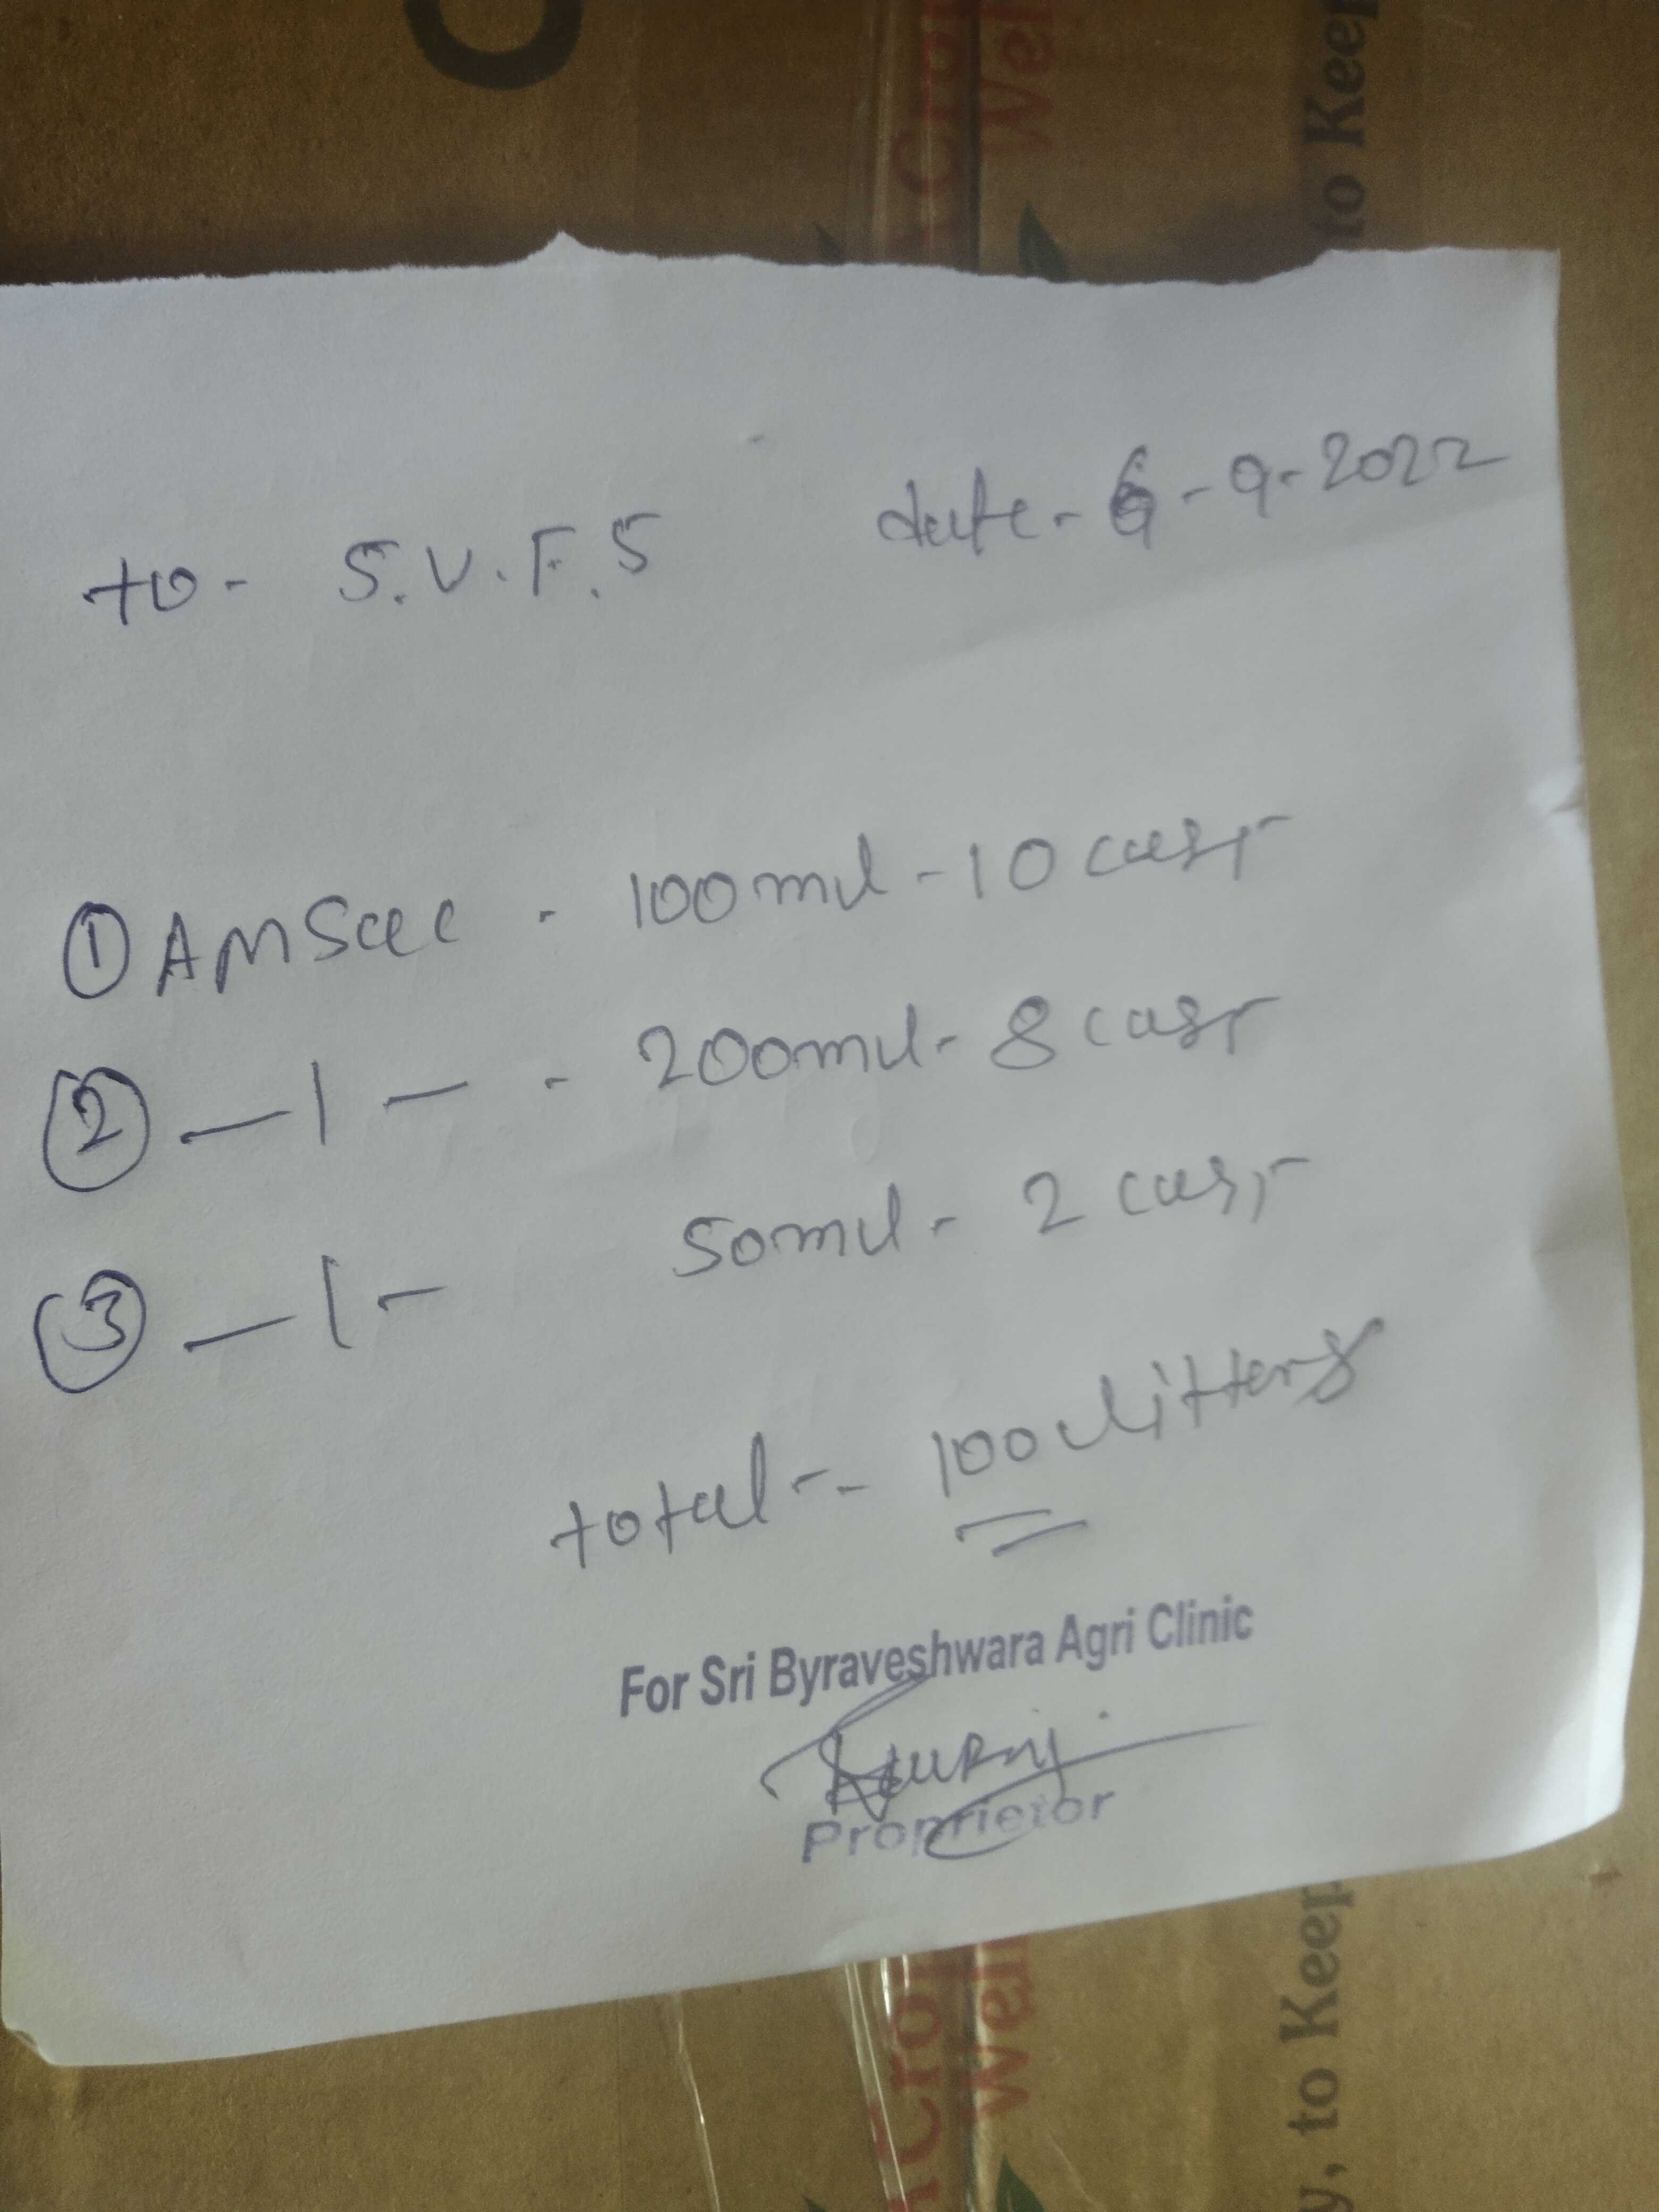 to - S.V.F.S date - 6-9-2022
① AMSaec - 100 ml - 10 case
② —|— - 200ml - 8 case
③ —|— 50ml - 2 case
total -- 100 Litters
For Sri Byraveshwara Agri Clinic
Proprietor
to Keep
Wel
Crop
y, to Keep